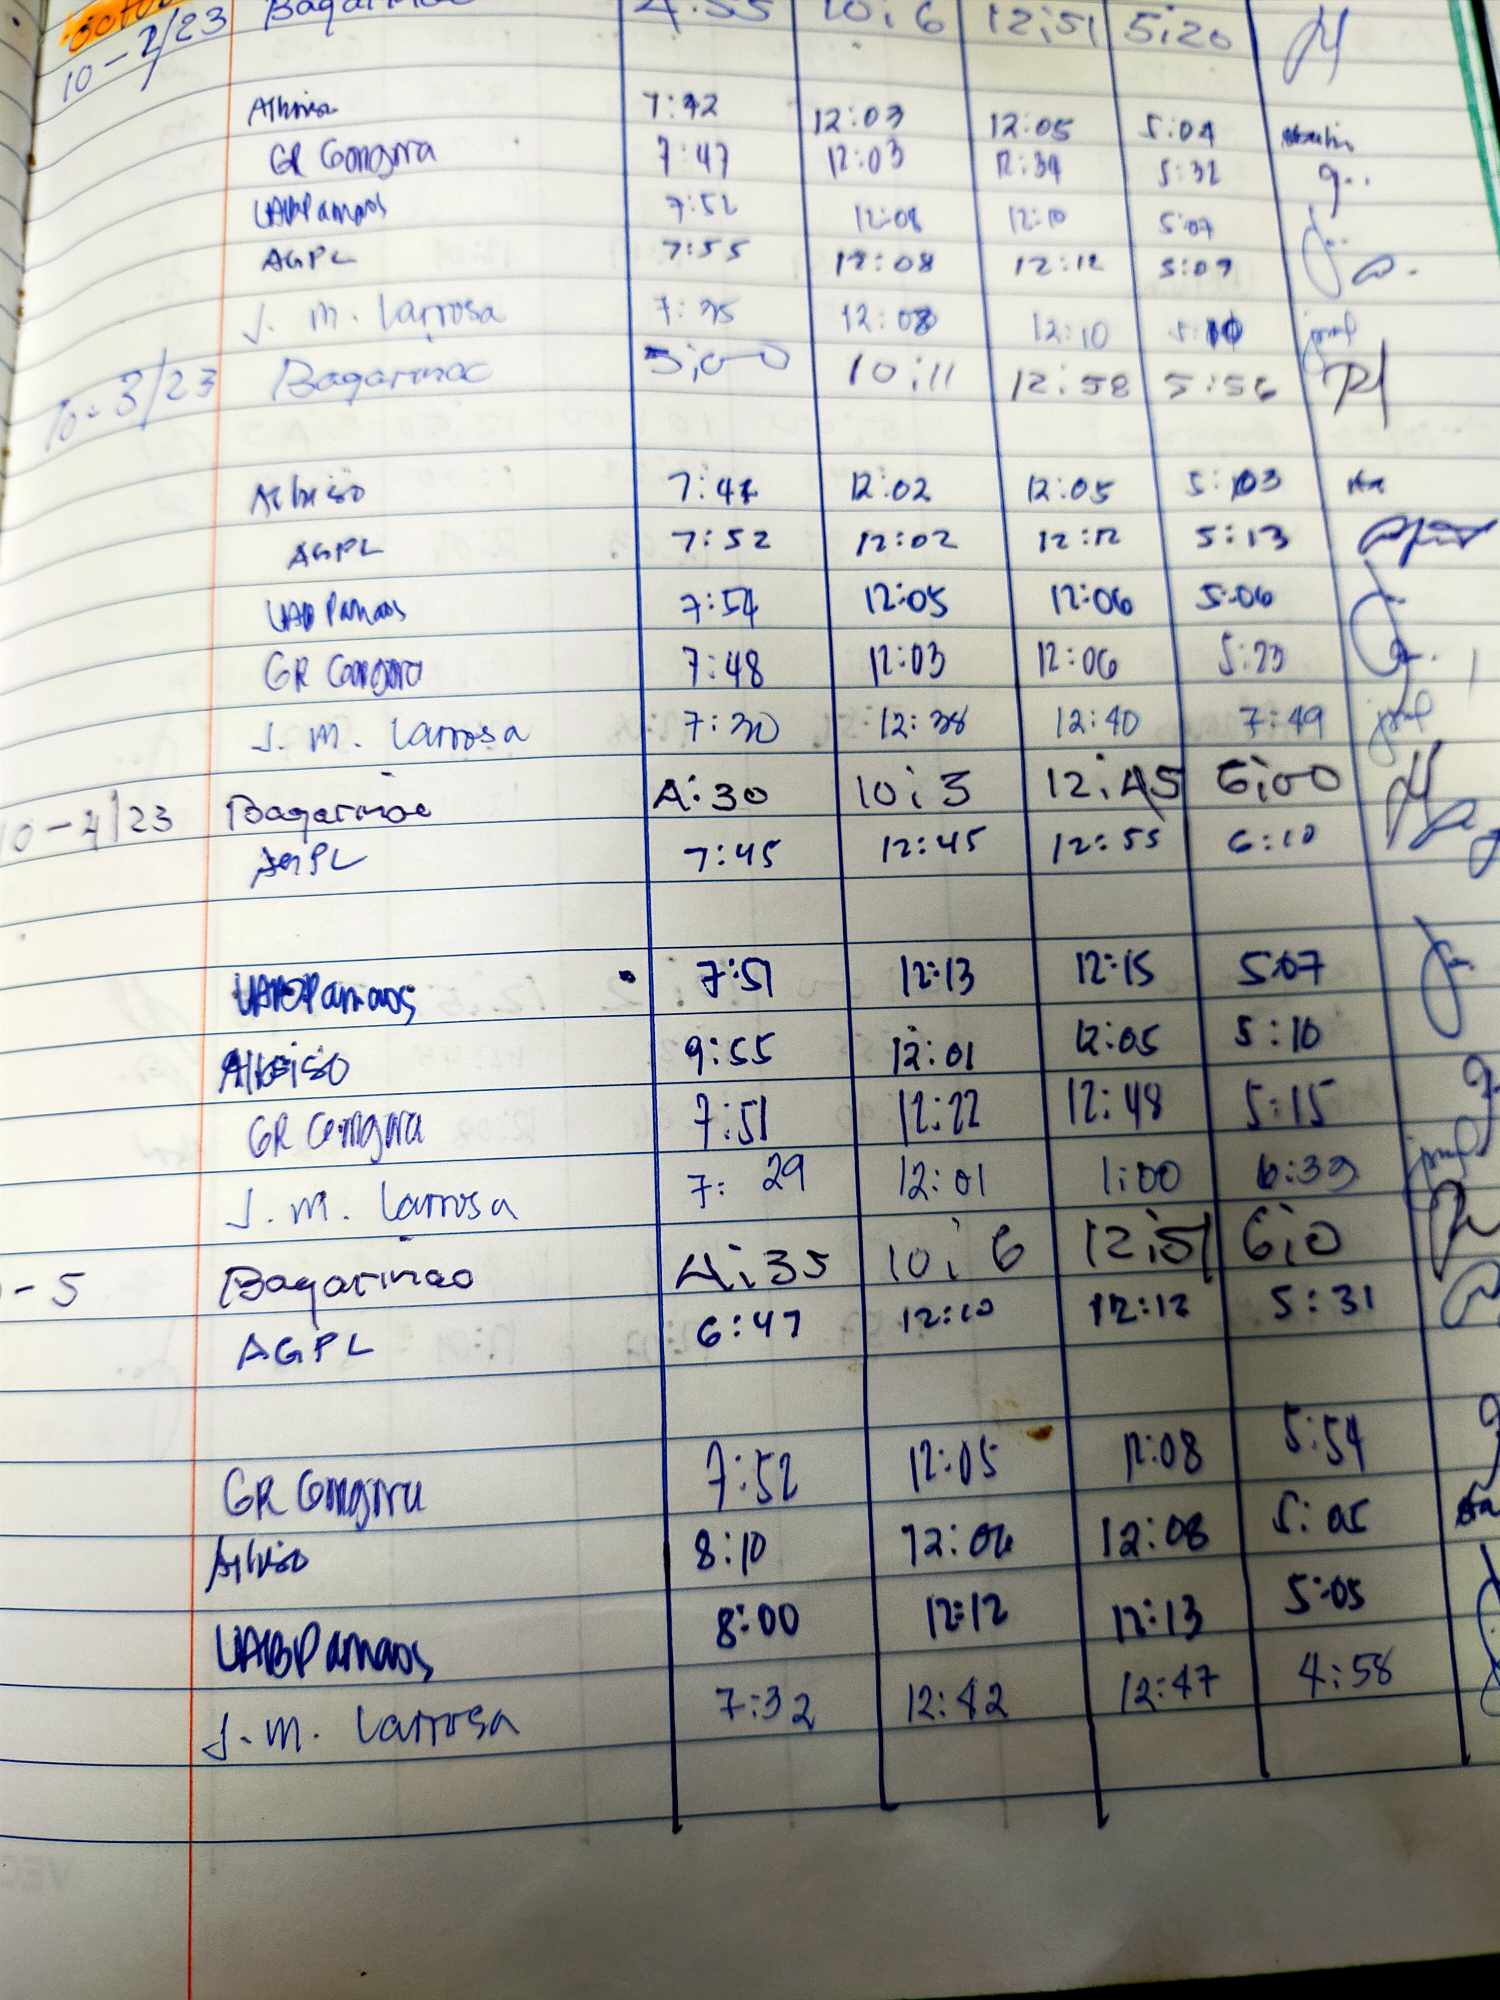 10-2/23 Bagarinao 4:55 10;6 12;51 5;20
Albiso 7:42 12:03 12:05 5:04
GR Gongora 7:47 12:03 12:34 5:32
UABPamaos 7:52 12:08 12:10 5:07
AGPL 7:55 12:08 12:12 5:09
J. M. Larrosa 7:35 12:08 12:10 5:10
10-3/23 Bagarinao 5;00 10;11 12:58 5:56
Albiso 7:47 12:02 12:05 5:03
AGPL 7:52 12:02 12:12 5:13
UAB Pamaos 7:54 12:05 12:06 5:06
GR Gongora 7:48 12:03 12:06 5:23
J. M. Larrosa 7:30 12:38 12:40 7:49
10-4/23 Bagarinao 4:30 10;3 12;45 6;00
AGPL 7:45 12:45 12:55 6:10
UABPamaos 7:51 12:13 12:15 5:07
Albiso 9:55 12:01 12:05 5:10
GR Gongora 7:51 12:22 12:48 5:15
J. M. Larrosa 7:29 12:01 1:00 6:39
-5 Bagarinao 4;35 10;6 12;51 6;0
AGPL 6:47 12:10 12:12 5:31
GR Gongora 7:52 12:05 12:08 5:54
Albiso 8:10 12:06 12:08 5:05
UABPamaos 8:00 12:12 12:13 5:05
J. M. Larrosa 7:32 12:42 12:47 4:58